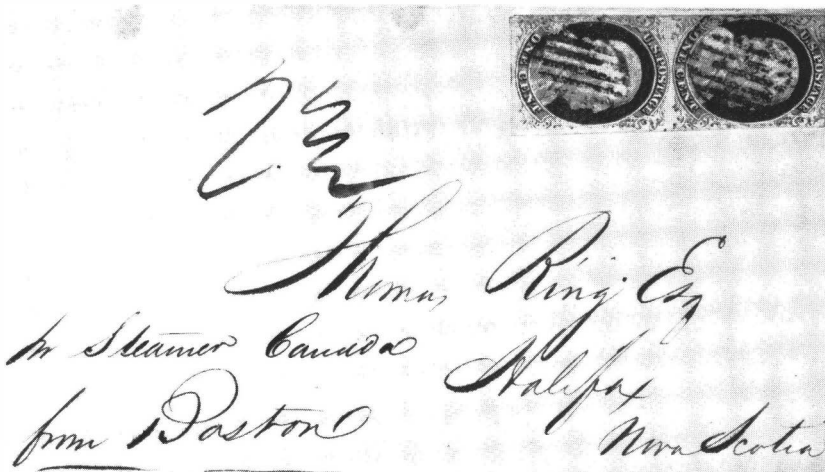 ONE CENT U.S. POSTAGE ONE CENT U.S. POSTAGE
Thomas Ring Esq
pr Steamer Canada
Halifax
from Boston
Nova Scotia